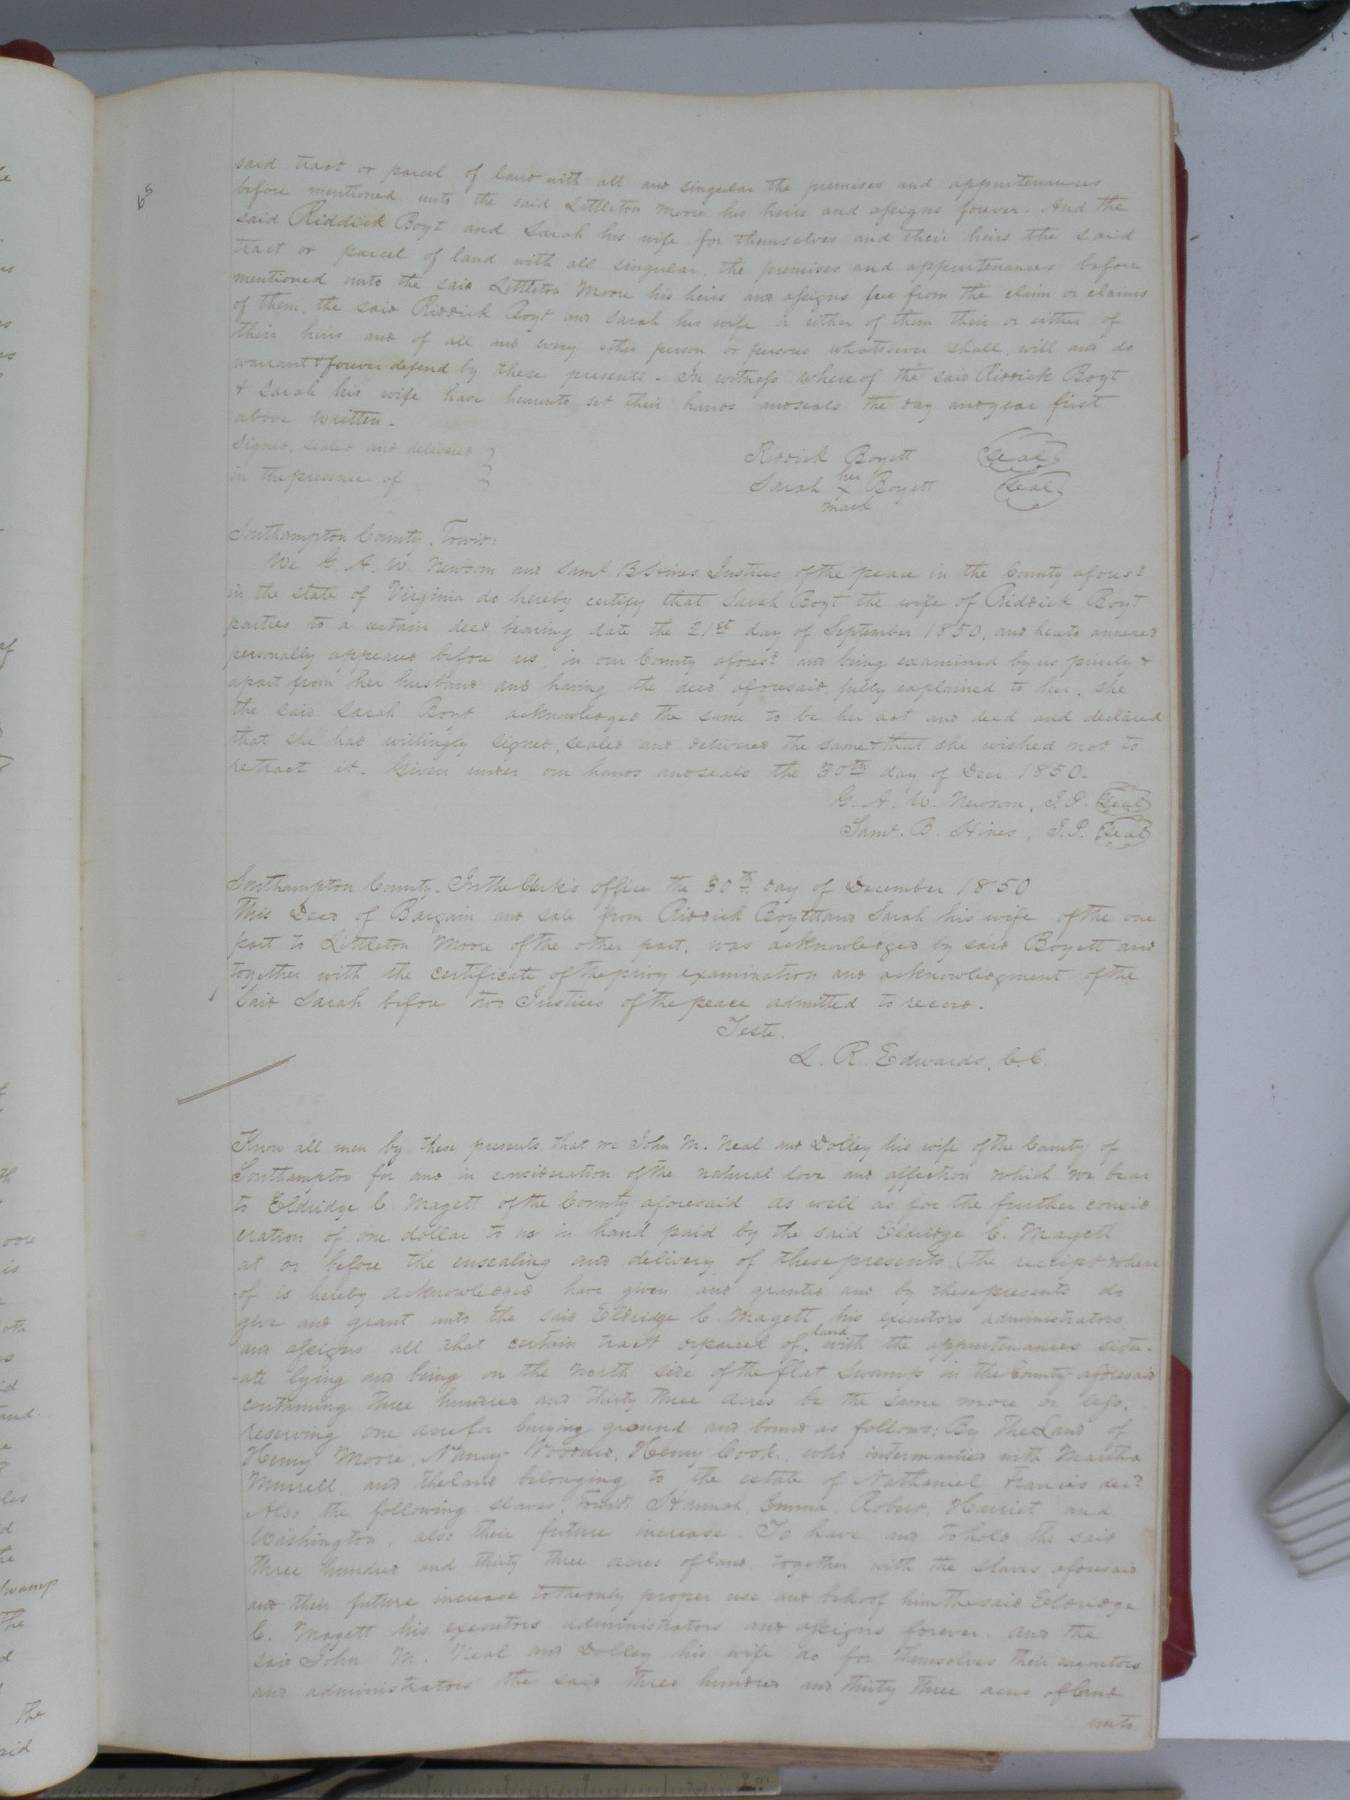 said tract or parcel of land with all and singular the premises and appurtenances
before mentioned unto the said Littleton Moore his heirs and assigns forever. And the
said Riddick Boyt and Sarah his wife for themselves and their heirs the said
tract or parcel of land with all singular, the premises and appurtenances before
mentioned unto the said Littleton Moore his heirs and assigns free from the claim or claims
of them, the said Riddick Boyt and Sarah his wife or either of them their or either of
their heirs and of all and every other person or persons whatsoever shall, will and do
warrant & forever defend by these presents. In witness whereof the said Riddick Boyt
& Sarah his wife have hereunto set their hands and seals the day and year first
above written.
Signed, sealed and delivered }
in the presence of }
Riddick Boyett (Seal)
Sarah her X mark Boyett (Seal)
Southampton County, Towit:
We G. A. W. Newsom and Saml B Hines Justices of the peace in the County aforesd
in the state of Virginia do hereby certify that Sarah Boyt the wife of Riddick Boyt
parties to a certain deed bearing date the 21st day of September 1850, and hereto annexed
personally appeared before us, in our County aforesd and being examined by us privily &
apart from her husband and having the deed aforesaid fully explained to her, she
the said Sarah Boyt acknowledged the same to be her act and deed and declared
that she had willingly signed, sealed and delivered the same & that she wished not to
retract it. Given under our hands and seals the 30th day of Decr 1850.
G. A. W. Newsom, J.P. (Seal)
Saml. B. Hines, J.P. (Seal)
Southampton County. In the Clerk's office the 30th day of December 1850
This Deed of Bargain and sale from Riddick Boytt and Sarah his wife of the one
part to Littleton Moore of the other part, was acknowledged by said Boyett and
together with the certificate of the privy examination and acknowledgment of the
said Sarah before two Justices of the peace admitted to record.
Teste.
L. R. Edwards, C.C.
Know all men by these presents, that we John M. Neal and Dolley his wife of the County of
Southampton for and in consideration of the natural love and affection which we bear
to Eldridge C Magett of the County aforesaid as well as for the further consid
eration of one dollar to us in hand paid by the said Eldridge C. Magett
at or before the ensealing and delivery of these presents (the receipt where
of is hereby acknowledged have given and granted and by these presents do
give and grant unto the said Eldridge C Magett his executors administrators
and assigns all that certain tract or parcel of land with the appurtenances situ-
-ate lying and being on the North side of the Flat Swamp in the County aforesaid
containing three hundred and thirty three acres be the same more or less,
reserving one acre for burying ground and bound as follows; By the Land of
Henry Moore, Nancy Worrell, Henry Cook, who intermarried with Martha
Murrell, and the land belonging to the estate of Nathaniel Francis decd
Also the following slaves, Towit, Hannah, Emma, Robert, Harriet and
Washington, also their future increase. To have and to hold the said
three hundred and thirty three acres of land, together with the slaves aforesaid
and their future increase to the only proper use and behoof him the said Eldridge
C. Magett his executors administrators and assigns forever. and the
said John M. Neal and Dolley his wife do for themselves their executors
and administrators the said three hundred and thirty three acres of land
unto